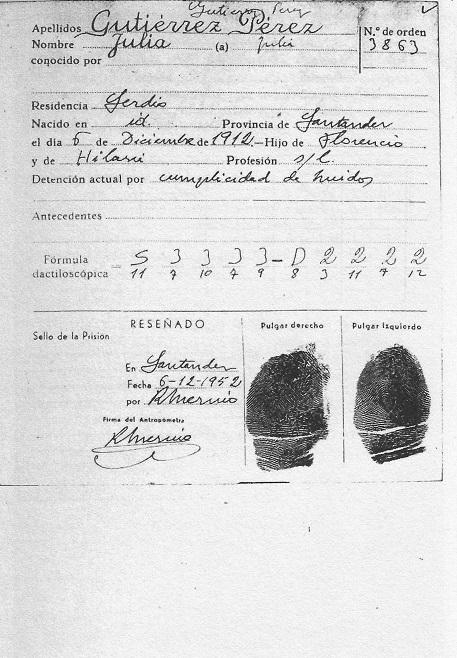 Gutierrez Perez
Apellidos Gutiérrez Pérez
N.º de orden
3863
Nombre Julia (a) Julia
conocido por
Residencia Serdio
Nacido en id. Provincia de Santander
el día 6 de Diciembre de 1912.—Hijo de Florencio
y de Hilaria Profesión s/l.
Detención actual por cumplicidad de huidos
Antecedentes
Fórmula dactiloscópica S 3 3 3 3 – D 2 2 2 2
11 7 10 7 9 8 3 11 7 12
RESEÑADO
Pulgar derecho
Pulgar Izquierdo
Sello de la Prision
En Santander
Fecha 6-12-1952
por RMerino
Firma del Antropómetra
RMerino